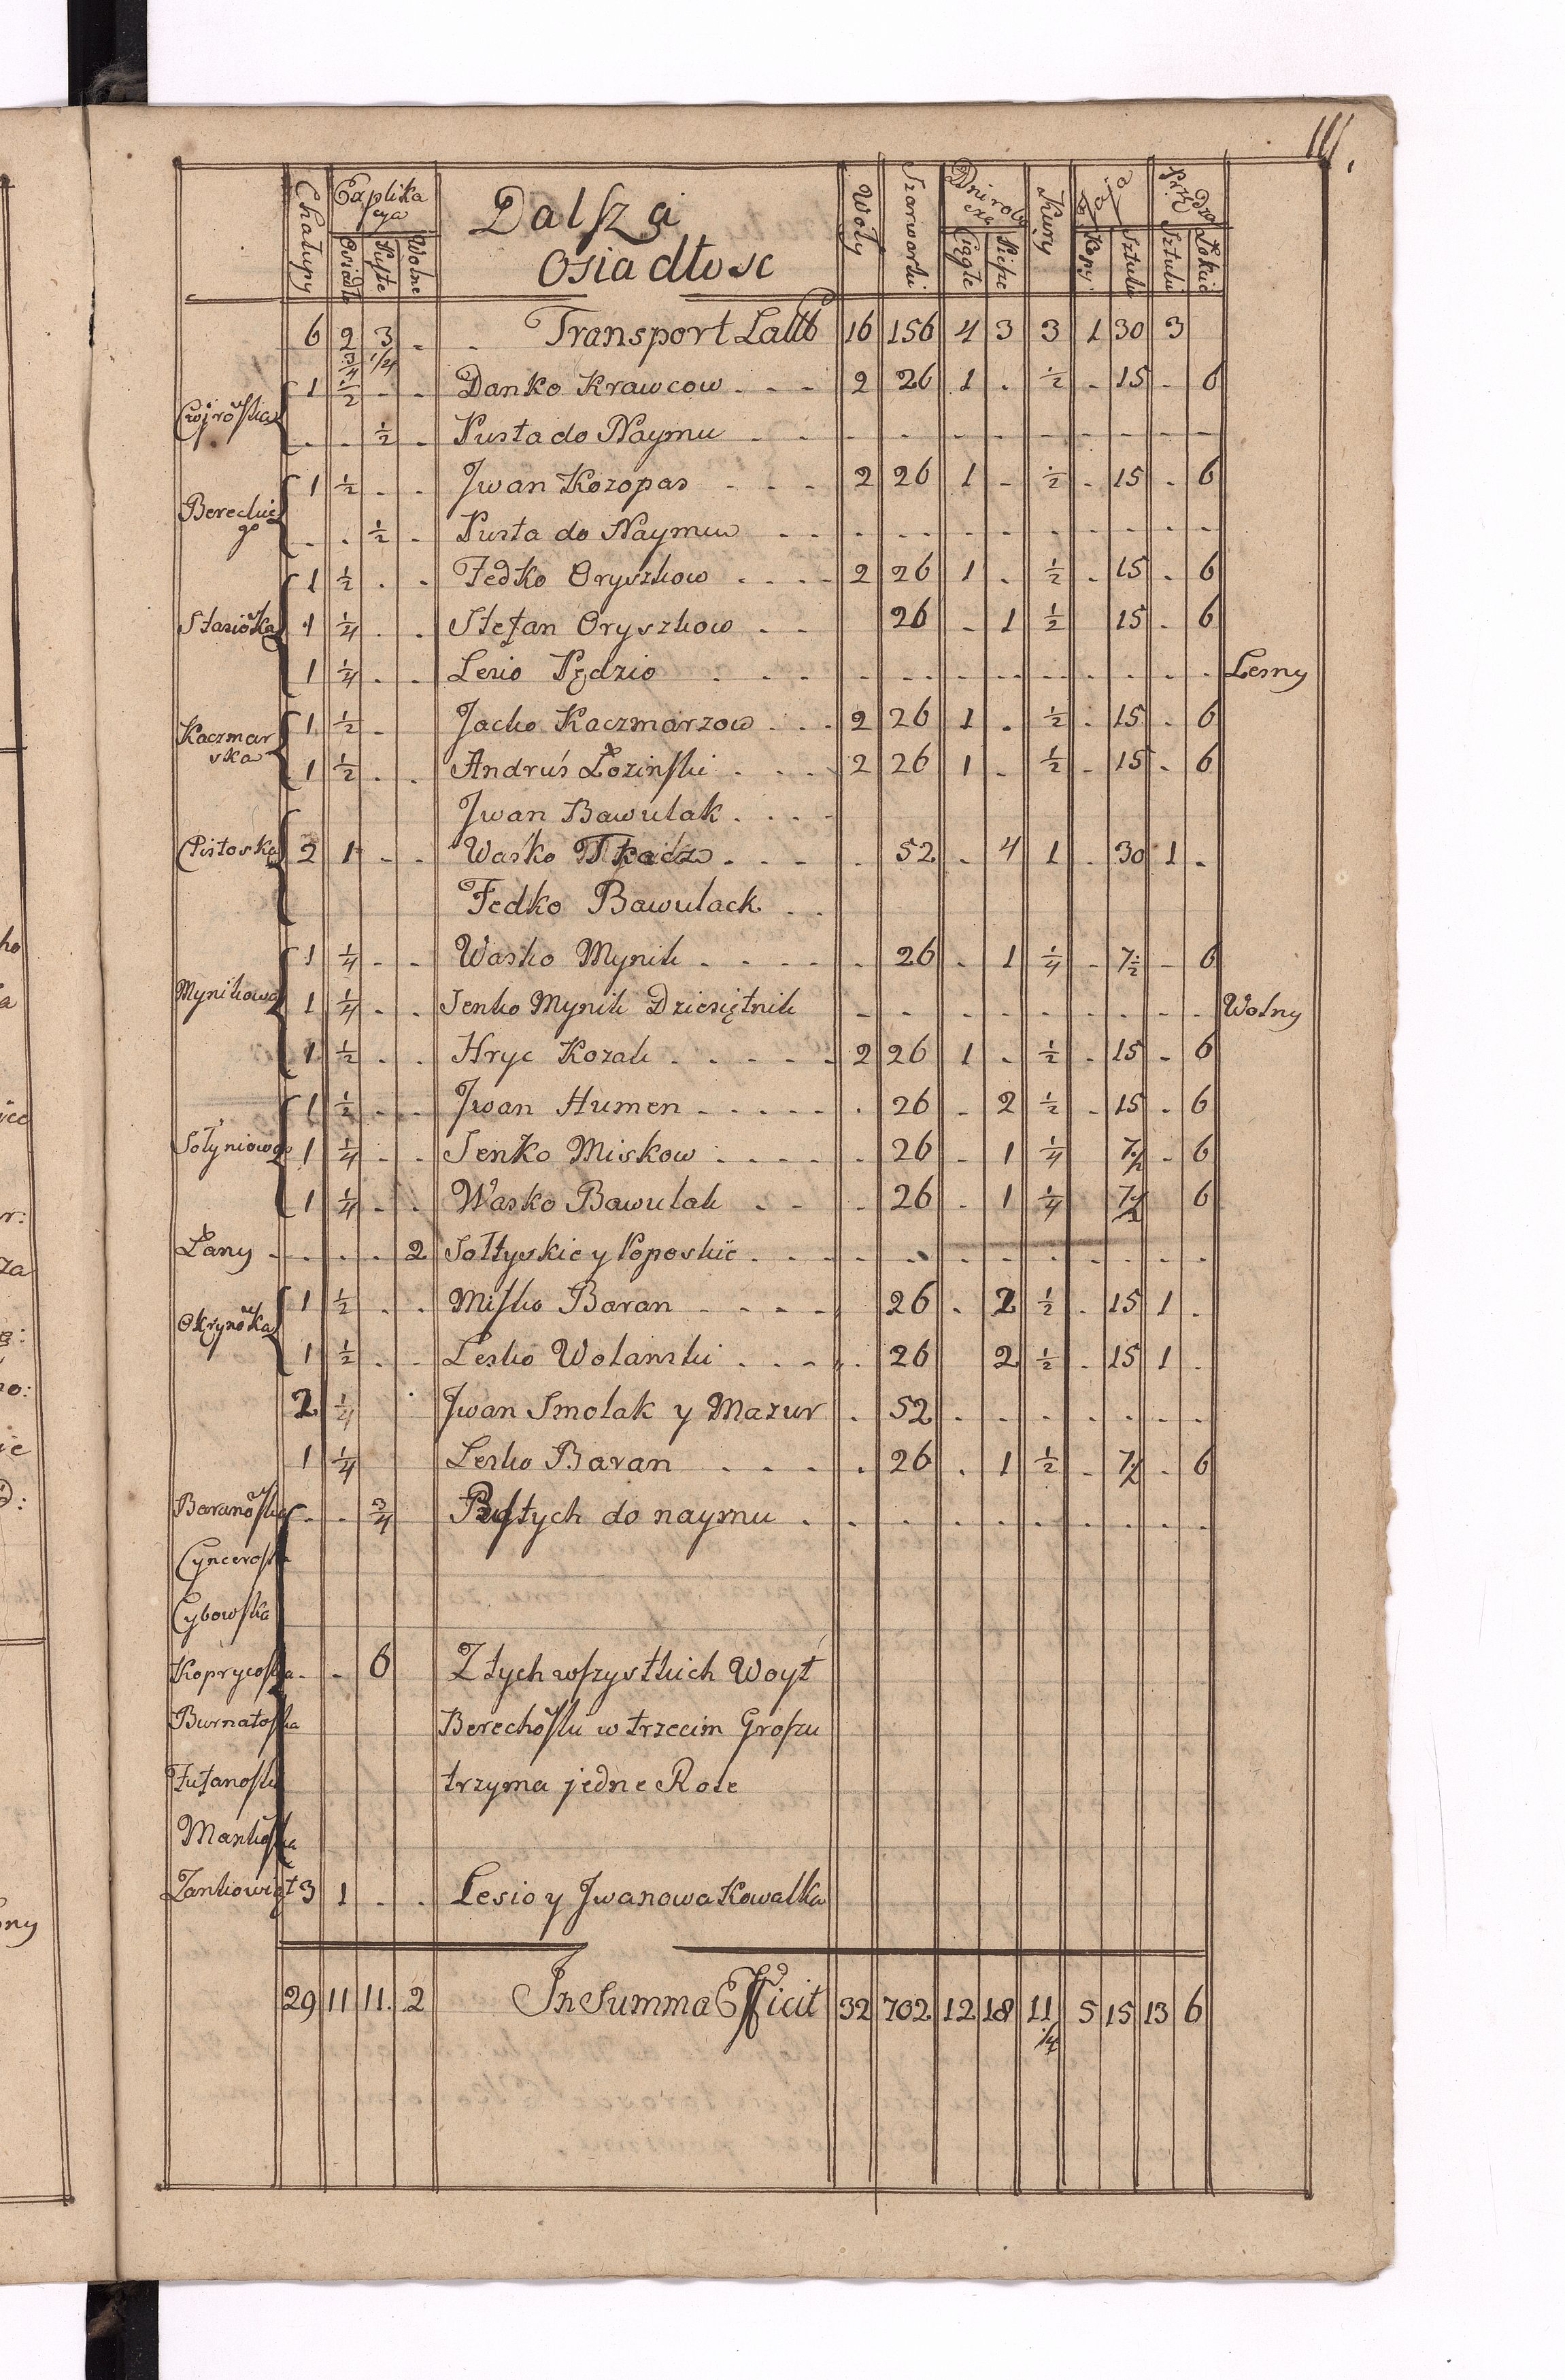 111.
Chałupy Explika cya Osiadłe Puste Wolne Dalsza Osiadłosc Woły Szarwarki Dni robo cze Ciągłe Piesze Kury Jaja Kopy Sztuki Przędza Sztuki Łokcie
6 2 3/4 3 1/4 - - Transport Latus 16 156 4 3 3 1 30 3
1 1/2 - - Danko Krawcow - - - 2 26 1 - 1/2 - 15 - 6
- - 1/2 - Pusta do Naymu - - - - - - - - - - - -
Bereckie go 1 1/2 - - Jwan Kozopas - - - 2 26 1 - 1/2 - 15 - 6
- - 1/2 - Pusta do Naymu - - - - - - - - - - -
1 1/2 - - Fedko Oryszkow - - - - 2 26 1 - 1/2 - 15 - 6
Stasioska 1 1/4 - - Stefan Oryszkow - - 26 - 1 1/2 15 - 6
1 1/4 - - Lesio Pędzio - - - - - - - - - - - - Lesny
Kaczmar ska 1 1/2 - Jacko Kaczmarzow - - - 2 26 1 - 1/2 - 15 - 6
1 1/2 - - Andruś Łozinski - - - - 2 26 1 - 1/2 - 15 - 6
Jwan Bawulak - - - -
Pistoska 2 1 - - Waśko Tkacz - - - - - 52 - 4 1 - 30 1 -
Fedko Bawulack - -
1 1/4 - - Wasko Mynik - - - - - - 26 - 1 1/4 - 7 1/2 - 6
Mynikowa 1 1/4 - - Senko Mynik Dziesiętnik - - - - - - - - - - Wolny
1 1/2 - - Hryc Kozak - - - - - 2 26 1 - 1/2 - 15 - 6
1 1/2 - - Jwan Humen - - - - - - 26 - 2 1/2 - 15 - 6
Sołyniowa 1 1/4 - - Senko Miskow - - - - - 26 - 1 1/4 7 1/2 - 6
1 1/4 - - Wasko Bawulak - - - 26 - 1 1/4 7 1/2 6
Łany - - - - 2 Sołtyskie y Poposkie - - - - - - - - - - - - -
Okrynoska 1 1/2 - - Misko Baran - - - - - 26 - 2 1/2 - 15 1 -
1 1/2 - - Lesko Wolanski - - - - - 26 2 1/2 - 15 1 -
2 1/4 Jwan Smolak y Mazur - 52 - - - - - - - -
1 1/4 Lesko Baran - - - - - 26 - 1 1/2 - 7 1/2 - 6
Baranoska - - 3/4 Pustych do naymu - - - - - - - - - - - -
Cynceroska
Cybowska
Koprycoska - - 6 Z tych wszystkich Woyt
Burnatoska Berechoski w trzecim Groszu
Futanoska trzyma jedne Role
Mankoska
Zankowięt 3 1 - - Lesio y Jwanowa Kowalka
29 11 11. 2 In Summa Efficit 32 702 12 18 11 1/4 5 15 13 6